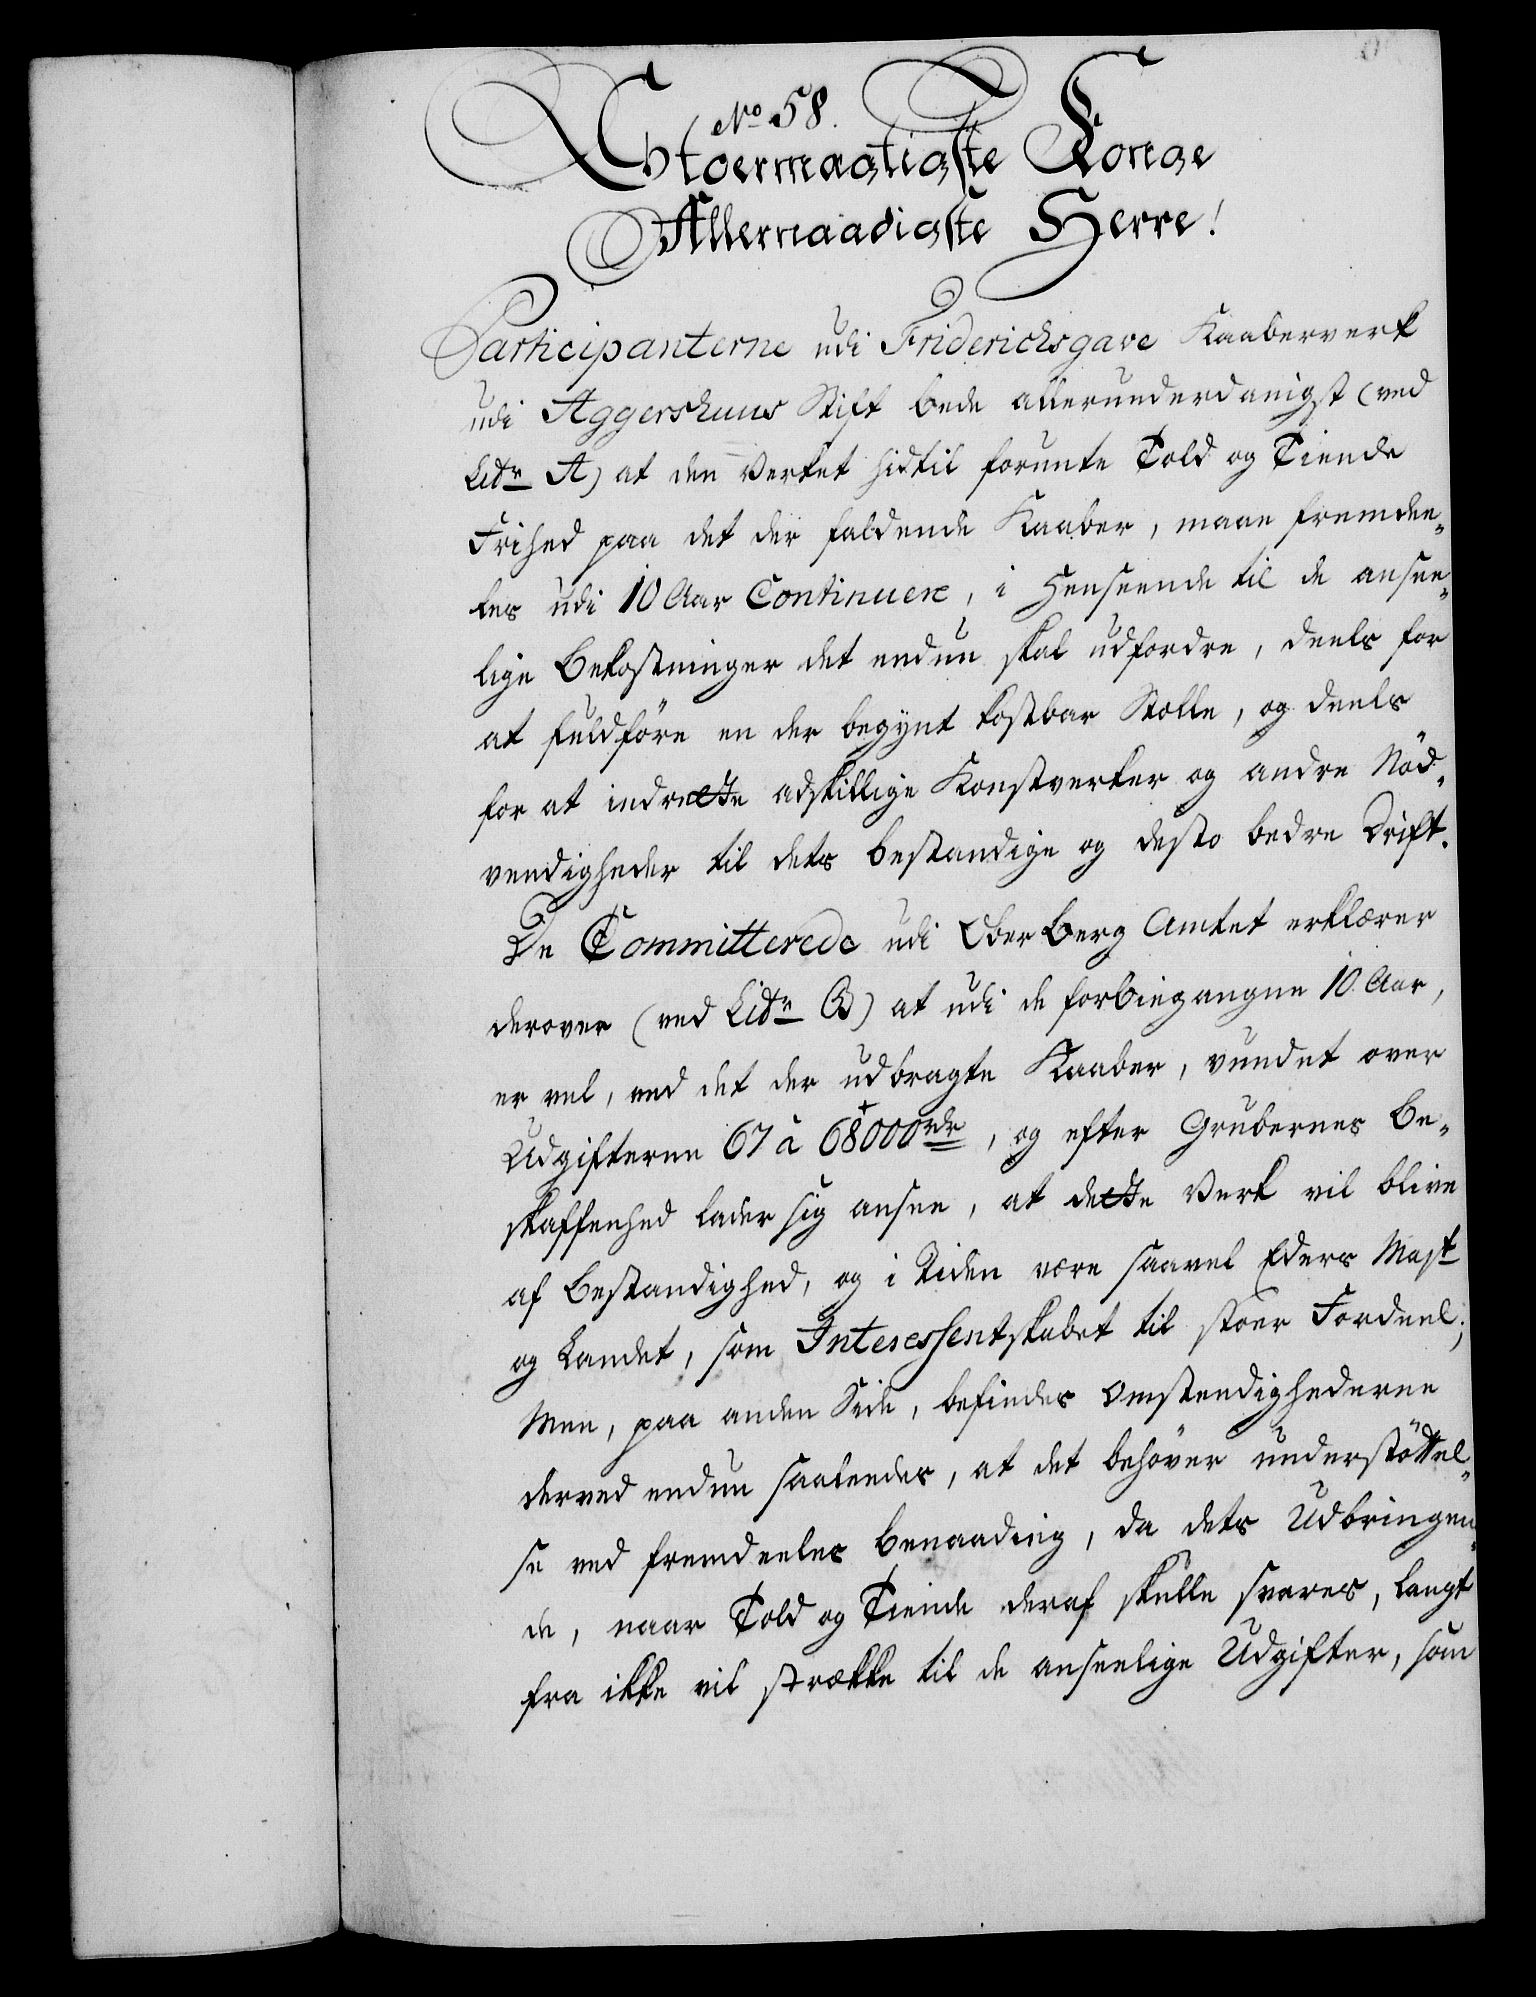 No 58.
Stoermægtigste Konge
Allernaadigste Herre!
Participanterne udi Friderichsgave Kaaberverk
udi Aggershuus Stift bede allerunderdanigst (ved
Litr A) at den Verket hidtil forunte Told og Tiende
Frihed paa det der faldende Kaaber, maae fremdee-
les udi 10 Aar Continuere, i Henseende til de ansee-
lige Bekostninger det endnu skal udfordre, deels for
at fuldföre en der begynt kostbar Stolle, og deels
for at indrette adskillige Konstverker og andre Nöd-
vendigheder til dets bestandige og desto bedre Drift.
De Committerede udi Ober Berg Amtet erklærer
derover (ved Litr B) at udi de forbiegangne 10 Aar,
er vel, ved det der udbragte Kaaber, vundet over
Udgifterne 67 à 68000 rdr, og efter Grubernes Be-
skaffenhed lader sig ansee, at dette Verk vil blive
af Bestandighed, og i Tiden være saavel Eders Mayt
og Landet, som Interessentskabet til stoer Fordeel;
Men, paa anden Side, befindes Omstendighederne
derved endnu saaledes, at det behöver understöttel-
se ved fremdeeles Benaading, da dets Udbringen-
de, naar Told og Tiende deraf skulle svares, langt
fra ikke vil strække til de anseelige Udgifter, som